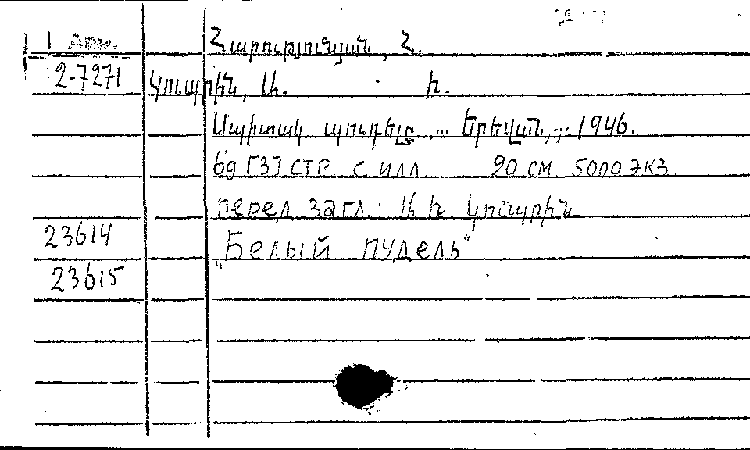 1 Арм. Հարությունյան, Հ.
2-7271 Կուպրին, Ա. Ի.
Սպիտակ պուդելը ... Երեվան, 1946.
69 [3] СТР. С ИЛЛ 20 СМ 5000 ЭКЗ
перед загл.: Ա Ի Կուպրին
23614 „Белый пудель"
23615